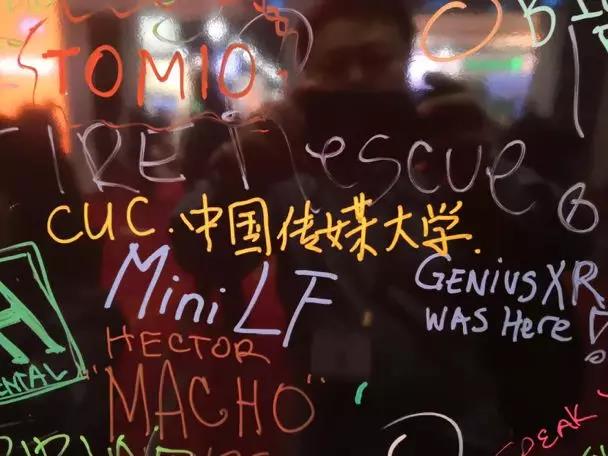 TOMIO
FIRE Rescue
CUC.中国传媒大学.
Mini LF
GENIUSXR
WAS HERE
HECTOR
"MACHO"
SPEAK